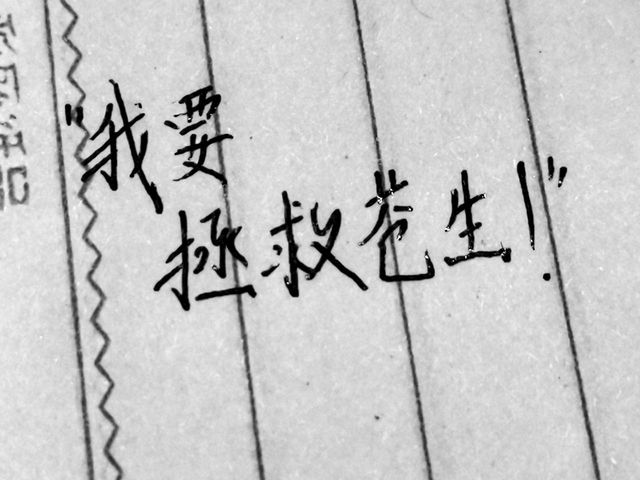 "我要
拯救苍生!"